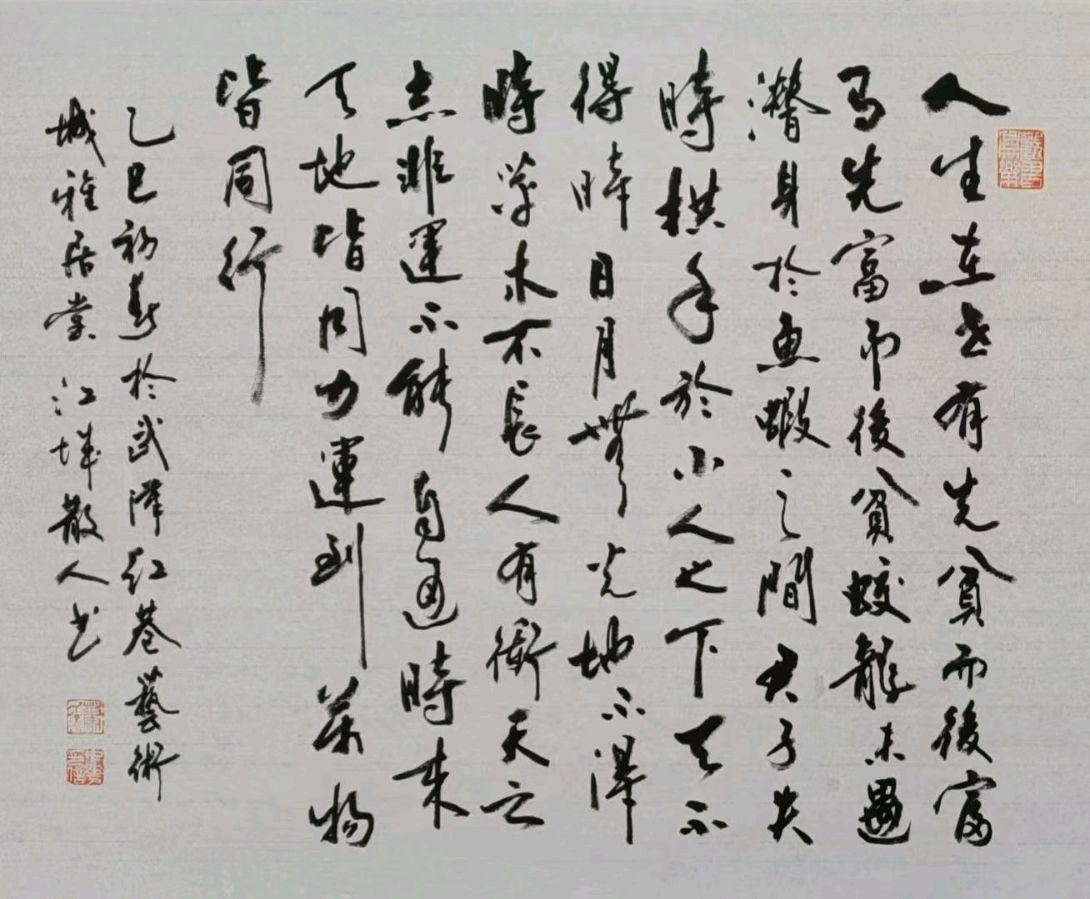 人生在世有先貧而後富
有先富而後貧蛟龍未遇
潛身於魚蝦之間君子失
時拱手於小人之下天不
得時日月無光地不得
時草木不長人有衝天之
志非運不能自通時來
天地皆同力運到萬物
皆同行
乙巳初春於武漢紅巷藝術
城雅居堂江城散人书